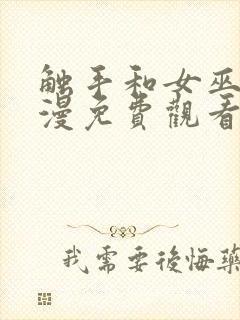 触手和女巫
漫免費觀看
我需要後悔藥